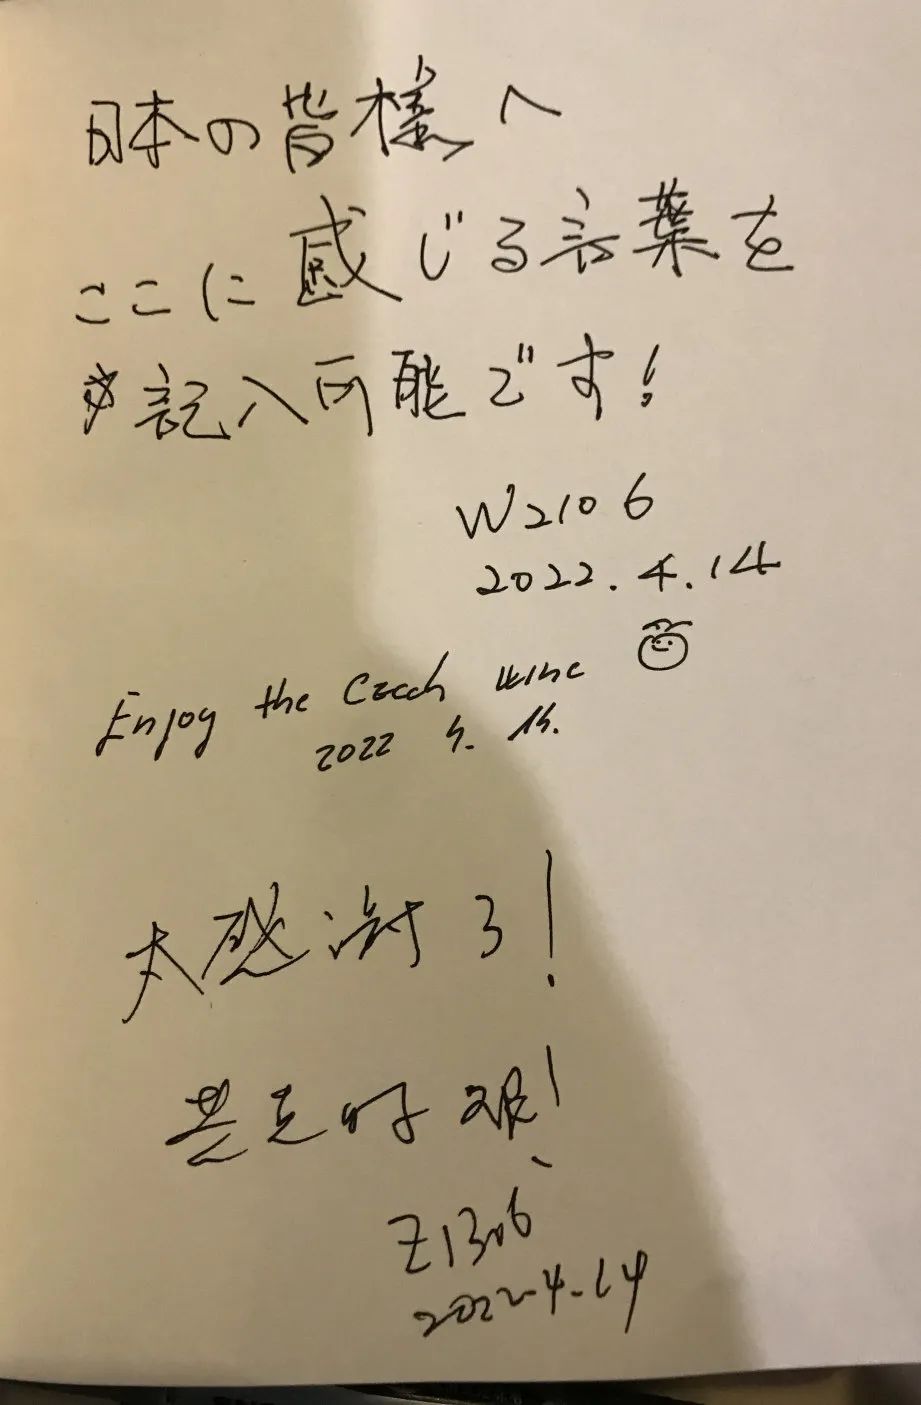 日本の皆様へ
ここに感じる言葉を
記入可能です！
W2106
2022.4.14
Enjoy the Czech wine
2022 4. 14.
太感谢了！
共克时艰！
Z1306
2022-4-14